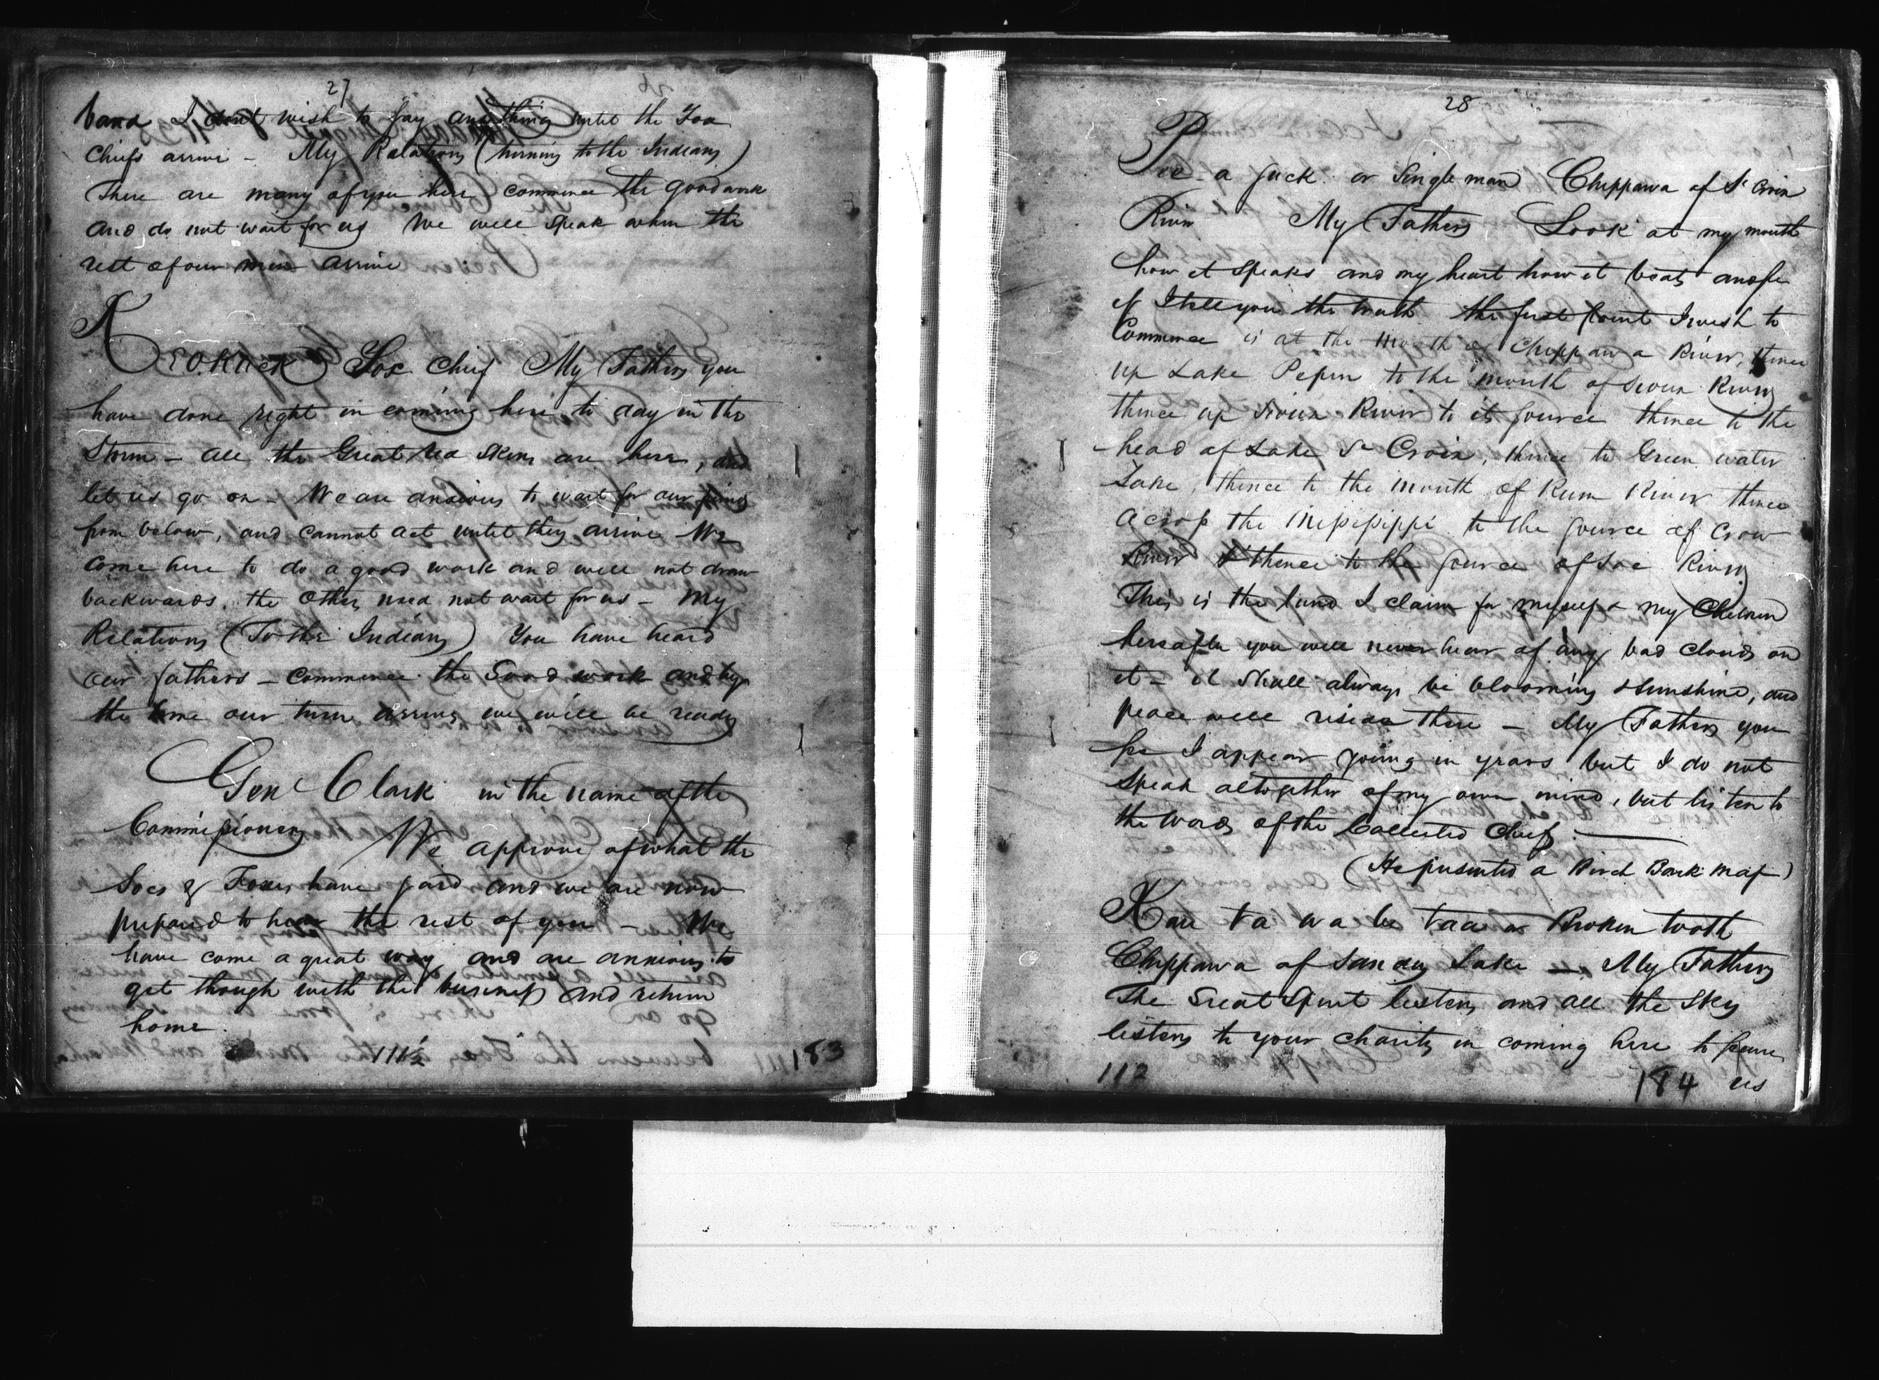 27
band I dont wish to say anything until the Fox
Chiefs arrive – My Relations (turning to the Indians)
There are many of you here commence the good work
and do not wait for us We will speak when the
rest of our men arrive
Keokuck Sox Chief My Fathers you
have done right in coming here to day in the
Storm – all the Great Red Skins are here, and
let us go on – We are anxious to wait for our
from below, and cannot act until they arrive We
Come here to do a good work and will not draw
backwards, the Others need not wait for us – My
Relations (To the Indians) You have heard
our fathers – commence the Good work and by
the time our turn arrives we will be ready
Genl Clark in the name of the
Commissioners We approve of what the
Socs & Foxes have said and we are now
prepared to hear the rest of you – We
have come a great way and are anxious to
get though with the business and return
home
111½ 183
28
a Jack or Single man Chippawa of St Croix
River My Fathers Look at my mouth
how it speaks and my heart how it beats and see
if I tell you the truth the first point I wish to
Commence is at the Mouth of Chippawa River, thence
up Lake Pepin to the mouth of Sioux River
thence up Sioux River to its source thence to the
head of Lake St Croix, thence to Green water
Lake, thence to the mouth of Rum River thence
across the Missisippi to the source of Crow
River & thence to the source of Soc River
This is the land I claim for myself & my Children
hereafter you will never hear of any bad clouds on
it – it Shall always be blooming & sunshine, and
peace will reside there – My Fathers you
see I appear young in years but I do not
speak altogether of my own mind, but listen to
the words of the Collected Chiefs
(He presented a Birch Bark Map)
Kau ta wa be taa or Broken tooth
Chippawa of Sanday Lake – My Fathers
The Great Spirit listens and all the Sky
listens to your charity in coming here to secure
112 184 us